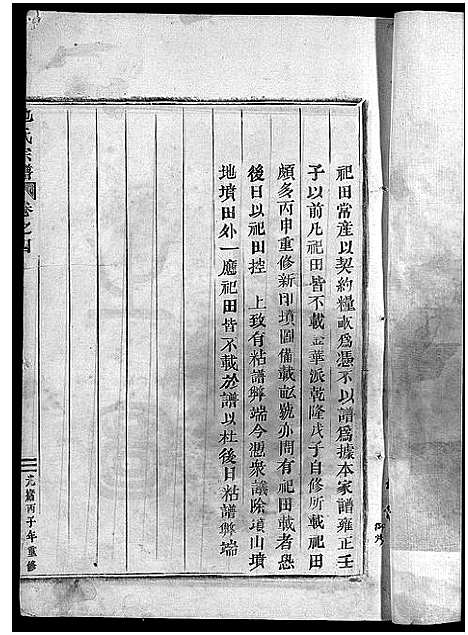 祀田常産以契約糧畝爲憑不以譜爲據本家譜雍正壬
子以前凡祀田皆不載金華派乾隆戊子自修所載祀田
頗多丙申重修新印墳圖備載畝號亦間有祀田載者恐
後日以祀田控　上致有粘譜弊端今慿衆議除項山墳
地墳田外一應祀田皆不載於譜以杜後日粘譜弊端
氏宗譜
卷之四
光緒丙子年重修